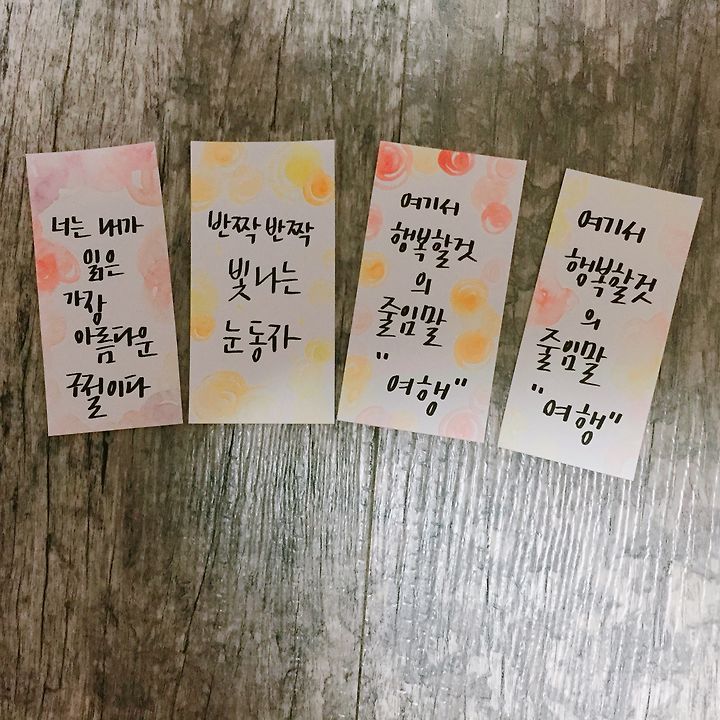 너는 내가
읽은
가장
아름다운
구절이다
반짝반짝
빛나는
눈동자
여기서
행복할것
의
줄임말
"여행"
여기서
행복할것
의
줄임말
"여행"